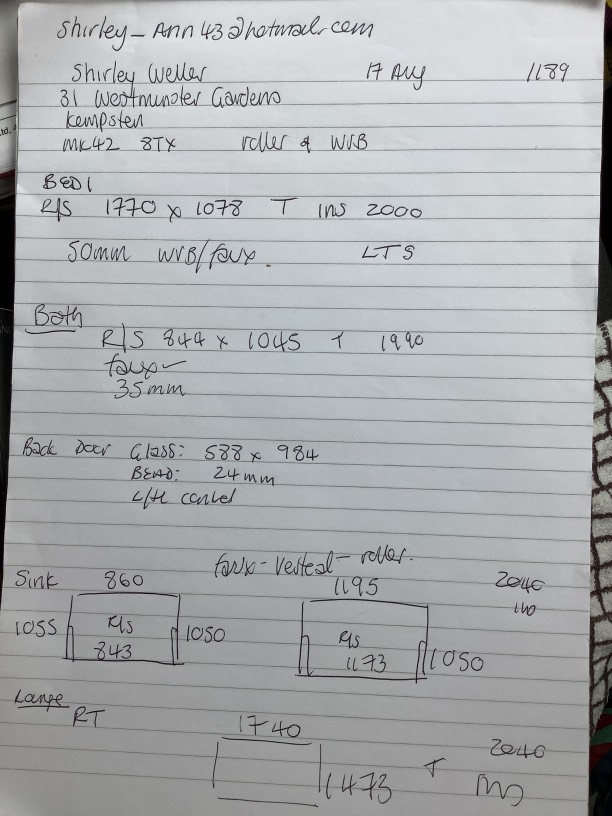 Shirley_Ann43@hotmail.com
Shirley Weller 17 Aug 1189
31 Westminster Gardens
Kempston
MK42 8TX roller & WVB
BED1
R/S 1770 x 1078 T INS 2000
50mm WVB/faux. LTS
Bath
R/S 844 x 1045 T 1990
faux
35mm
Back Door Glass: 588 x 984
BEAD: 24mm
L/H control
faux - Vertical - roller.
Sink 860 1195 2040
1055 R/S 1050 R/S
843 1173 1050
RT
1740 2040
1473 T